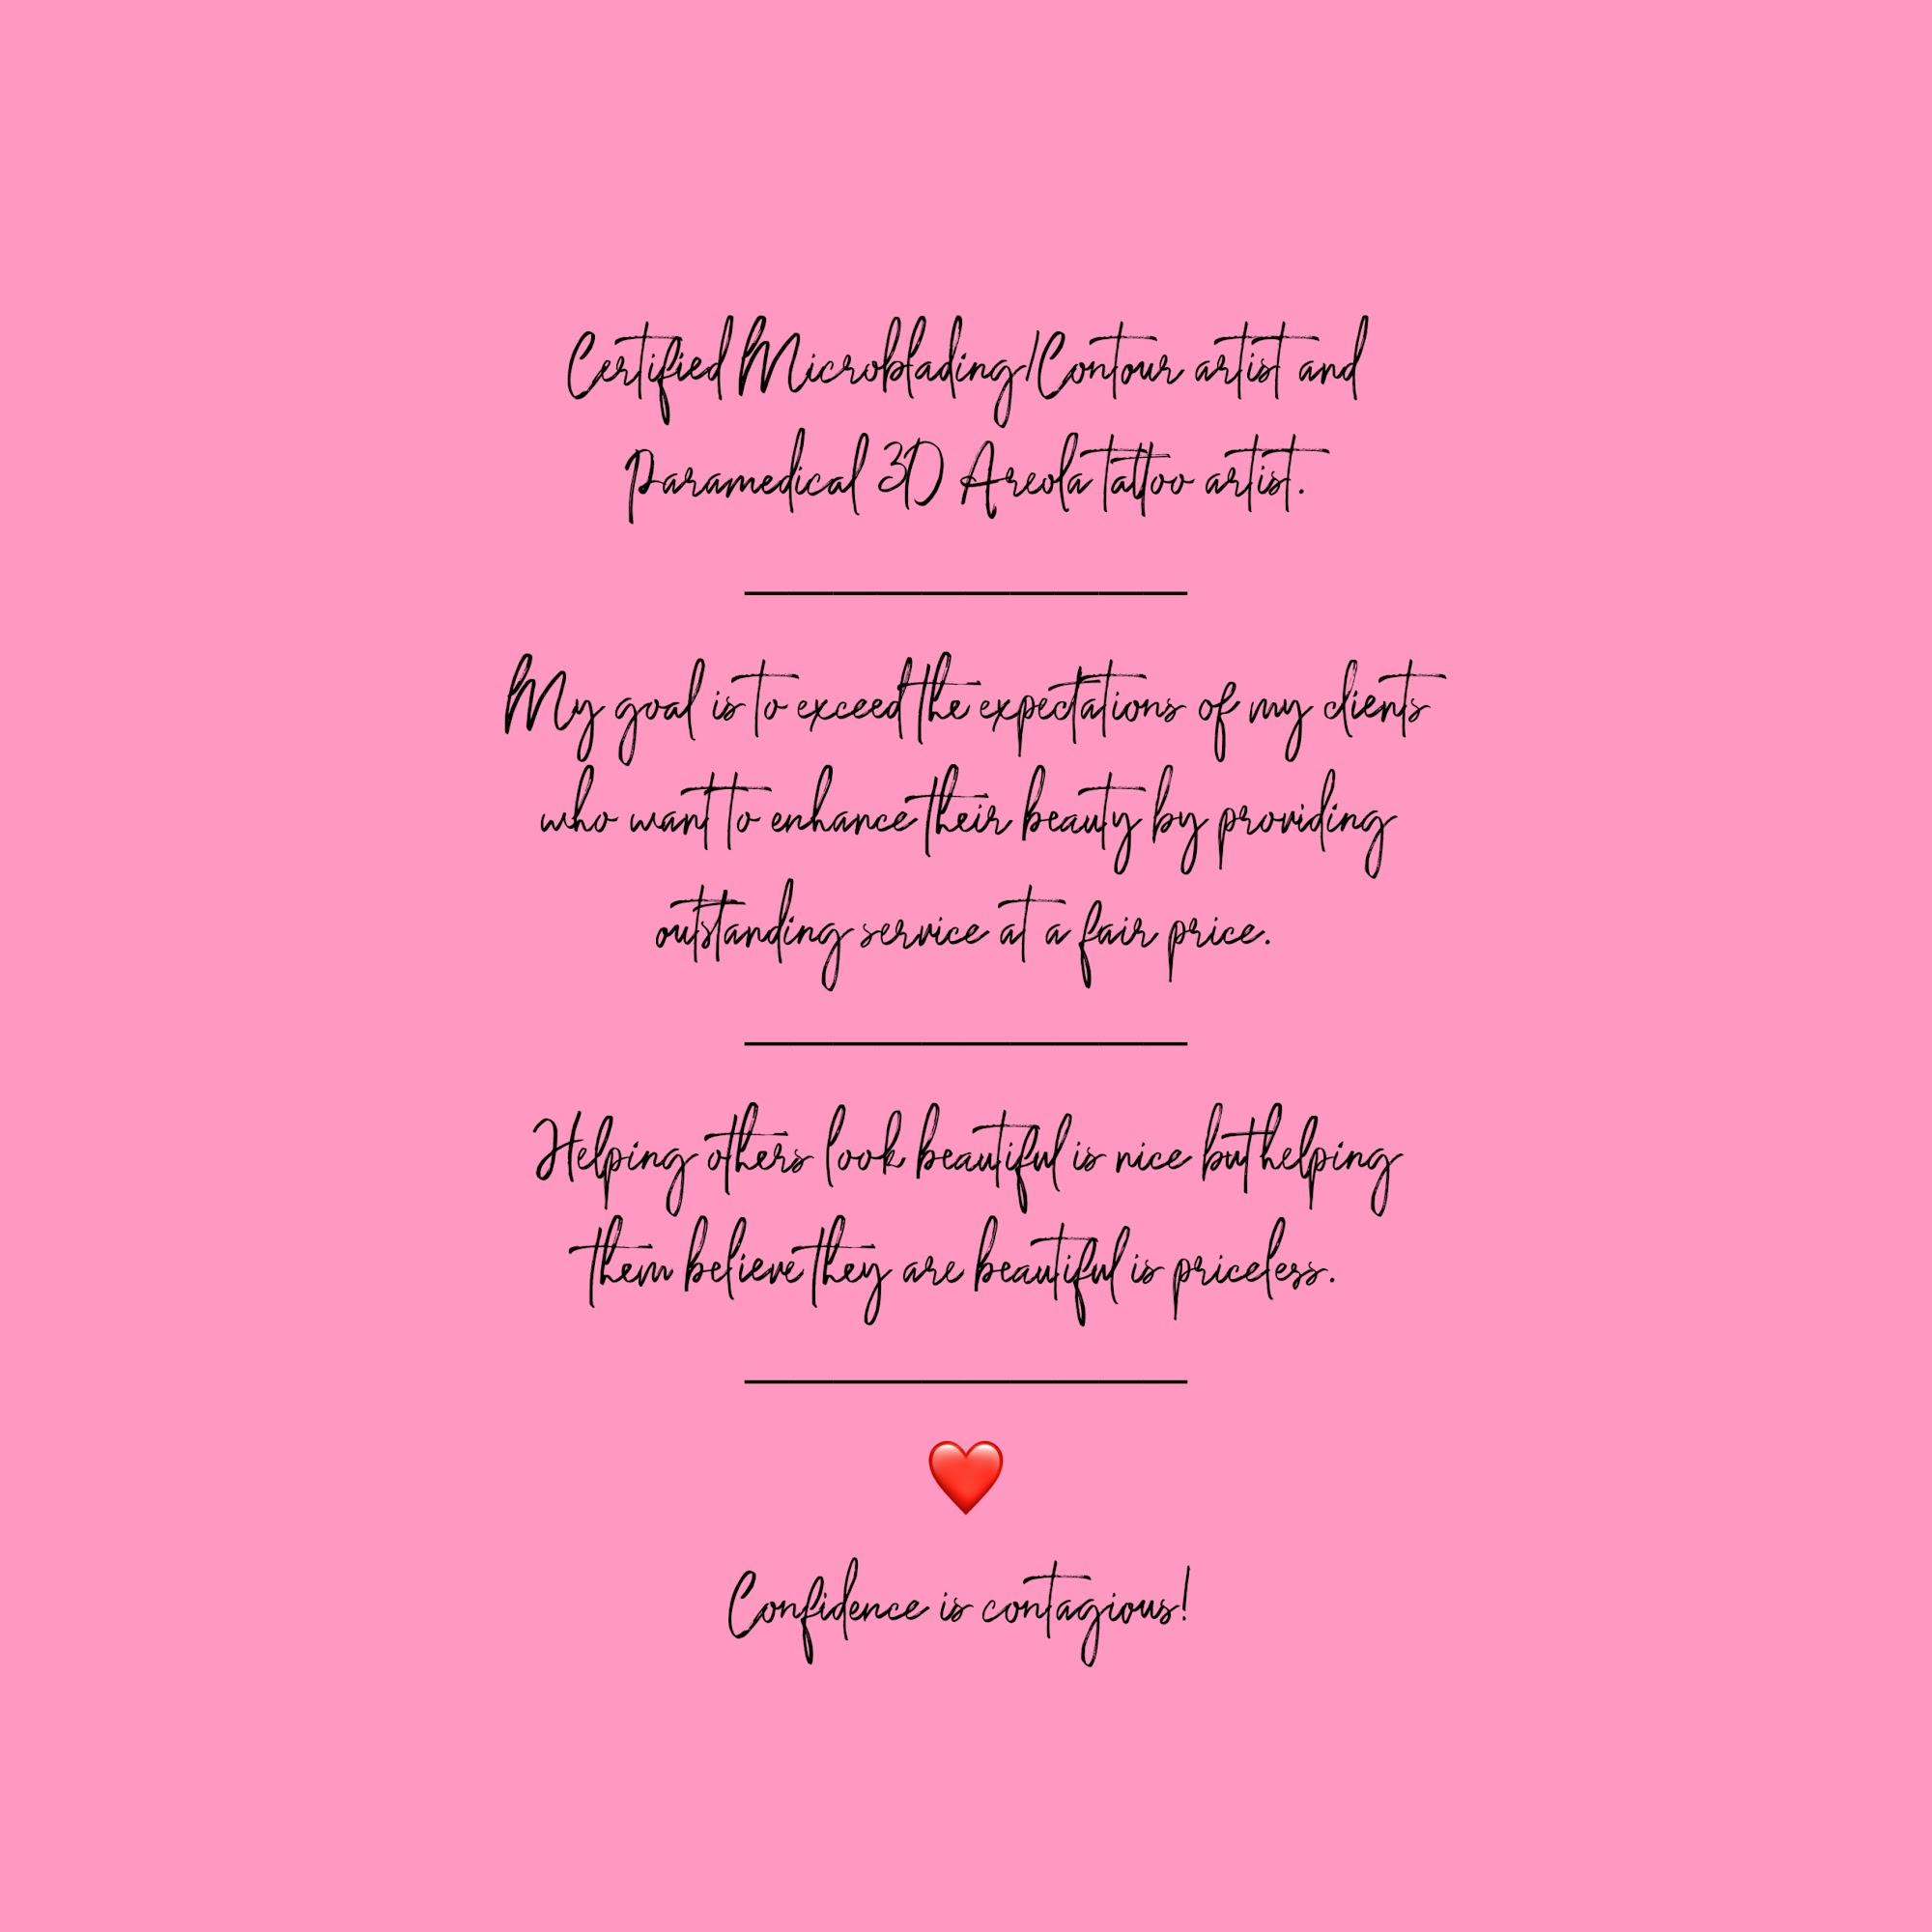 Certified Microblading/Contour artist and
Paramedical 3D Areola tattoo artist.
My goal is to exceed the expectations of my clients
who want to enhance their beauty by providing
outstanding service at a fair price.
Helping others look beautiful is nice but helping
them believe they are beautiful is priceless.
❤️
Confidence is contagious!